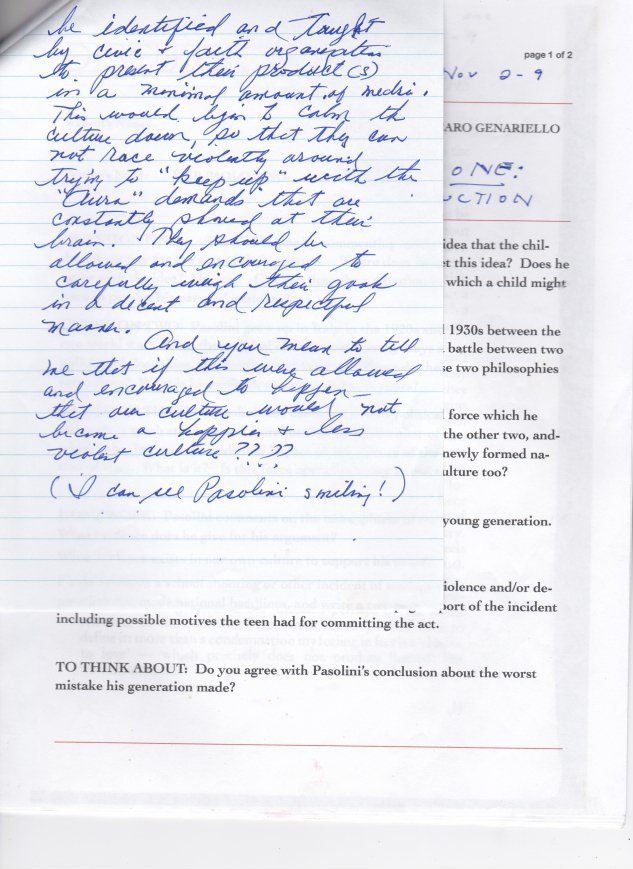 be identified and taught
by civic & faith organizations
to present their product(s)
in a minimal amount of media.
This would begin to calm the
culture down, so that they can
not race violently around
trying to "keep up" with the
demands that are
constantly shoved at their
brain. They should be
allowed and encouraged to
carefully weigh their goals
in a decent and respectful
manner.
And you mean to tell
me that if this were allowed
and encouraged to happen –
that our culture would not
become a happier & less
violent culture ????
(I can see Pasolini smiling!)
page 1 of 2
Nov 2-9
ARO GENARIELLO
ONE:
UCTION
idea that the chil-
t this idea? Does he
which a child might
1930s between the
battle between two
se two philosophies
force which he
the other two, and-
newly formed na-
ulture too?
young generation.
iolence and/or de-
port of the incident
including possible motives the teen had for committing the act.
TO THINK ABOUT: Do you agree with Pasolini's conclusion about the worst
mistake his generation made?